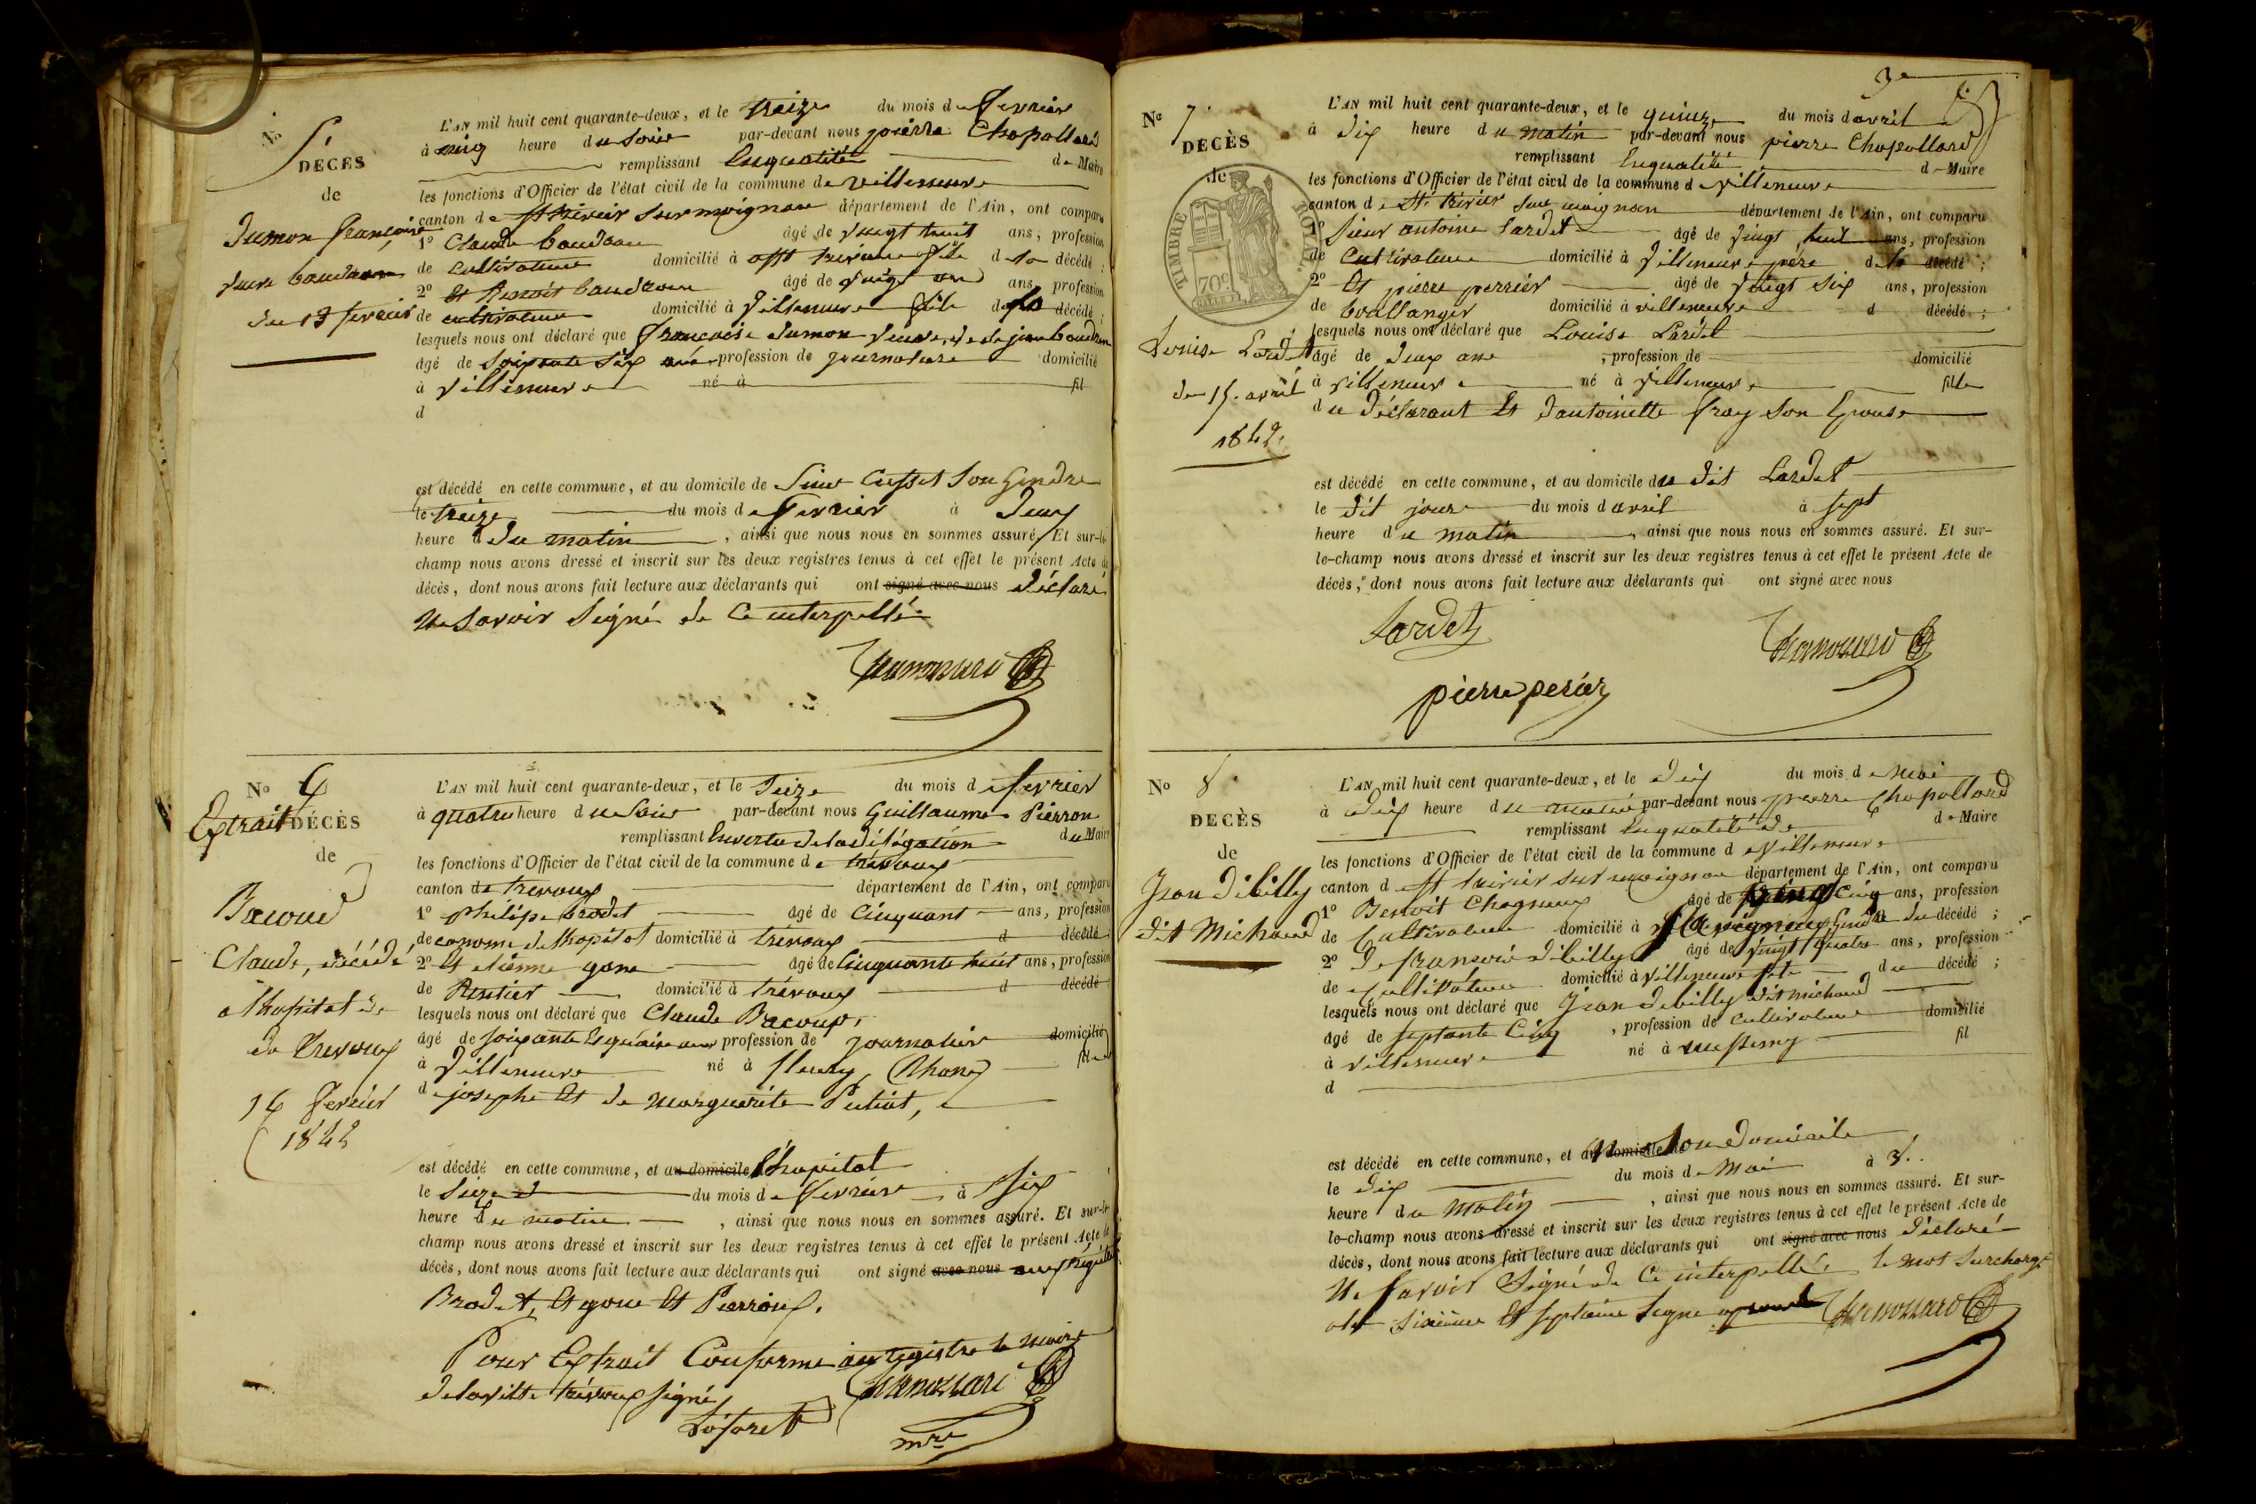 No 5
DÉCÈS
de
Dumon françoise
veuve baudron
du 13 fevrier
L'AN mil huit cent quarante-deux, et le treize du mois de fevrier
à cinq heure du soir par-devant nous pierre Chapollard
remplissant En qualité de Maire
les fonctions d'Officier de l'état civil de la commune de villeneuve
canton de st trivier sur moignan département de l'Ain, ont comparu
1º Claude baudron âgé de vingt huit ans, profession
de cultivateur domicilié à st trivier fils de la décédé ;
2º Et Benoit baudron âgé de vingt ans, profession
de cultivateur domicilié à villeneuve fils de la décédé ;
lesquels nous ont déclaré que françoise dumon veuve de jean baudron
âgé de soixante six ans profession de journaliere domicilié
à villeneuve né à fil
d
est décédé en cette commune, et au domicile de Cusset son Gendre
le treize du mois de fevrier à deux
heure d du matin , ainsi que nous nous en sommes assuré. Et sur-le-
champ nous avons dressé et inscrit sur les deux registres tenus à cet effet le présent Acte de
décès, dont nous avons fait lecture aux déclarants qui ont signé avec nous déclaré
Ne savoir signé de ce interpellé
No 6
Extrait DÉCÈS
de
Bacoud
Claude, décédé
a lhopital de
de Trevoux
16 fevrier
1842
L'AN mil huit cent quarante-deux, et le seize du mois de fevrier
à quatre heure du soir par-devant nous Guillaume Pierron
remplissant En vertu de la délégation du Maire
les fonctions d'Officier de l'état civil de la commune de trévoux
canton de trevoux département de l'Ain, ont comparu
1º philipe brodet âgé de cinquant ans, profession
de econome de lhopital domicilié à trévoux d décédé
2º Et etienne gone âgé de cinquante huit ans, profession
de Rentier domicilié à trévoux d décédé
lesquels nous ont déclaré que Claude Bacoux,
âgé de soixante profession de journalier domicilié
à villeneuve né à fleury (Rhone) fils
de josephe Et de Marguerite Putiat,
est décédé en cette commune, et au domicile l'hopital
le seize du mois de fevrier à six
heure du matin , ainsi que nous nous en sommes assuré. Et sur-le-
champ nous avons dressé et inscrit sur les deux registres tenus à cet effet le présent Acte de
décès, dont nous avons fait lecture aux déclarants qui ont signé avec nous
Brodet, Et gone Et Pierron.
Pour Extrait Conforme au registre le maire
de la ville trévoux signé
mre
3e
No 7.
DÉCÈS
de
TIMBRE ROYAL
70c
Louise Lardet
du 15. avril
1842.
L'AN mil huit cent quarante-deux, et le quinze du mois d avril
à dix heure du matin par-devant nous pierre Chapollard
remplissant En qualité de Maire
les fonctions d'Officier de l'état civil de la commune de villeneuve
canton de St. trivier sur moignan département de l'Ain, ont comparu
1º sieur antoine Lardet âgé de vingt huit ans, profession
de cultivateur domicilié à villeneuve père de la décédé ;
2º Et pierre perrier âgé de vingt six ans, profession
de boullanger domicilié à villeneuve d décédé ;
lesquels nous ont déclaré que Louise Lardet
âgé de deux ans , profession de domicilié
à villeneuve né à villeneuve fille
du déclarant Et dantoinette fray son Epouse
est décédé en cette commune, et au domicile du dit Lardet
le dit jour du mois d avril à sept
heure du matin , ainsi que nous nous en sommes assuré. Et sur-
le-champ nous avons dressé et inscrit sur les deux registres tenus à cet effet le présent Acte de
décès, dont nous avons fait lecture aux déclarants qui ont signé avec nous
Lardet
pierre perier
No 8.
DÉCÈS
de
Jean Debilly
dit Michaud
L'AN mil huit cent quarante-deux, et le dix du mois de mai
à dix heure du matin par-devant nous pierre Chapollard
remplissant En qualité de de Maire
les fonctions d'Officier de l'état civil de la commune de villeneuve
canton de st trivier sur moignan département de l'Ain, ont comparu
1º Benoit Chagneux âgé de cinq ans, profession
de Cultivateur domicilié à gendre du décédé ;
2º De francois debilly âgé de vingt quatre ans, profession
de cultivateur domicilié à villeneuve fils du décédé ;
lesquels nous ont déclaré que Jean debilly dit michaud
âgé de septante cinq , profession de cultivateur domicilié
à villeneuve né à messimy fil
d
est décédé en cette commune, et au domicile de son domicile
le dix du mois de Mai à 3.
heure du matin , ainsi que nous nous en sommes assuré. Et sur-
le-champ nous avons dressé et inscrit sur les deux registres tenus à cet effet le présent Acte de
décès, dont nous avons fait lecture aux déclarants qui ont signé avec nous déclaré
Ne savoir signé de ce interpellé. le mot surchargé
sixieme Et septieme ligne